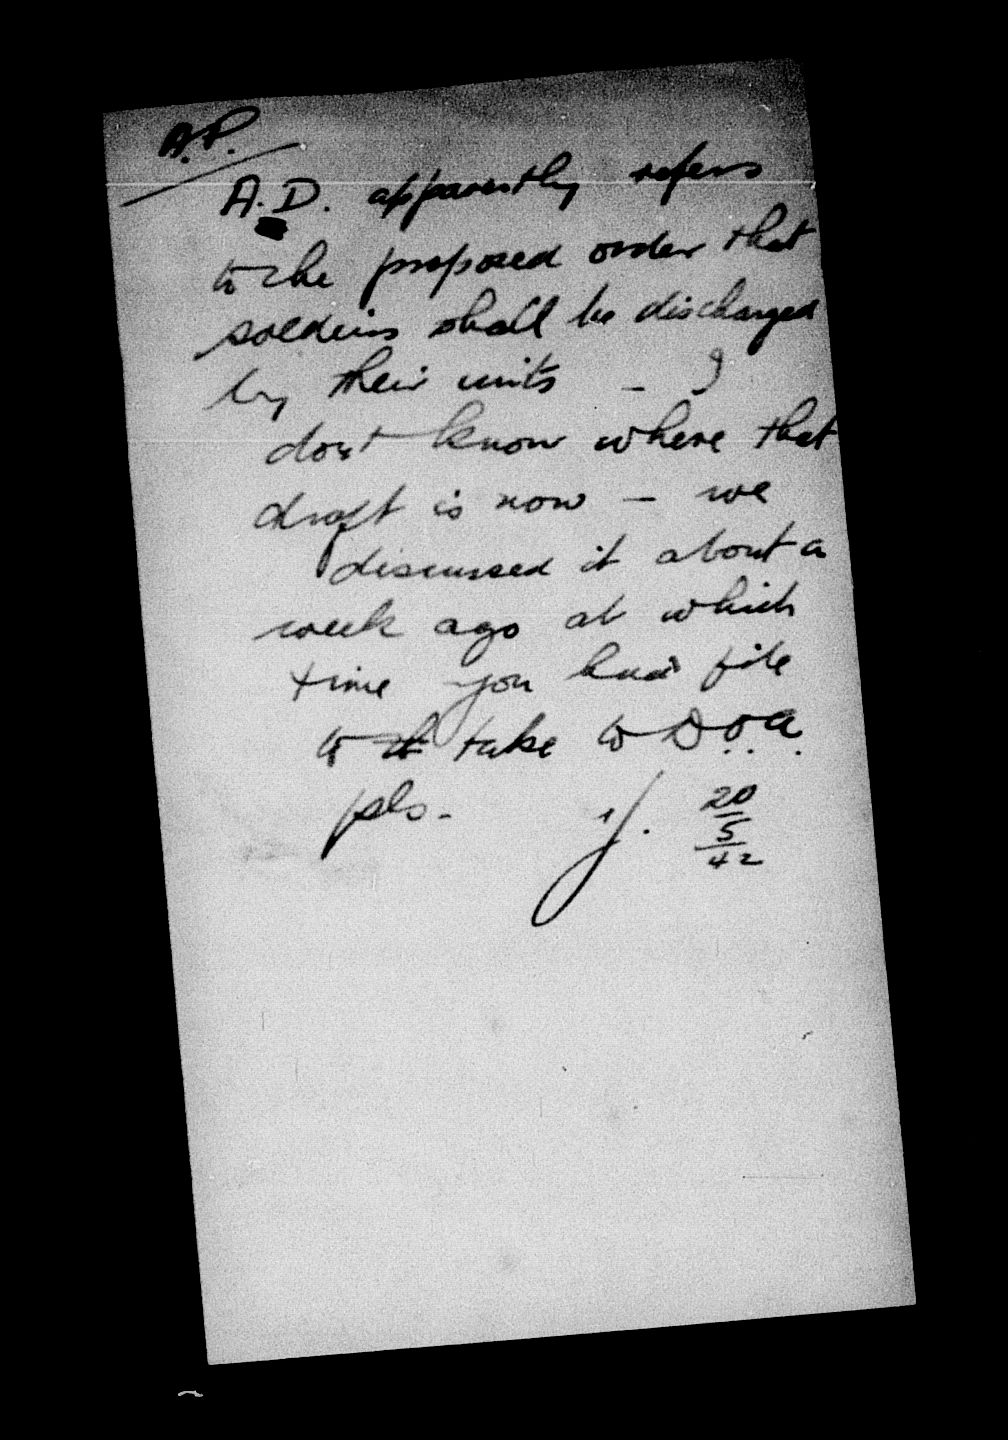 A.P.
A.D. apparently refers
to the proposed order that
soldiers shall be discharged
by their units - I
don't know where that
draft is now - we
discussed it about a
week ago at which
time you had file
to take to D.O.A.
pls. J. 20
5
42